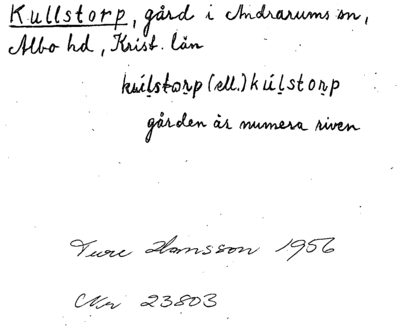 Kullstorp, gård i Andrarums sn,
Albo hd, Krist. län
(ell.)
gården är numera riven
Ture Hansson 1956
Nr 23803